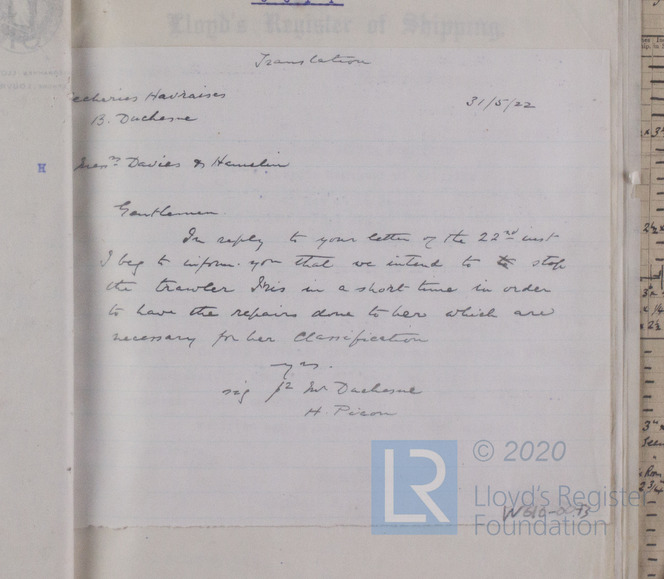 Lloyd's Register of Shipping.
Translation
Pecheries Havraises
31/5/22
B. Duchesne
H
Messrs Davies & Hamelin
Gentlemen
In reply to your letter of the 22nd inst
I beg to inform you that we intend to stop
the trawler Iris in a short time in order
to have the repairs done to her which are
necessary for her Classification
yrs.
sig pr Mr Duchesne
H Picon
LR
© 2020
Lloyd's Register
Foundation